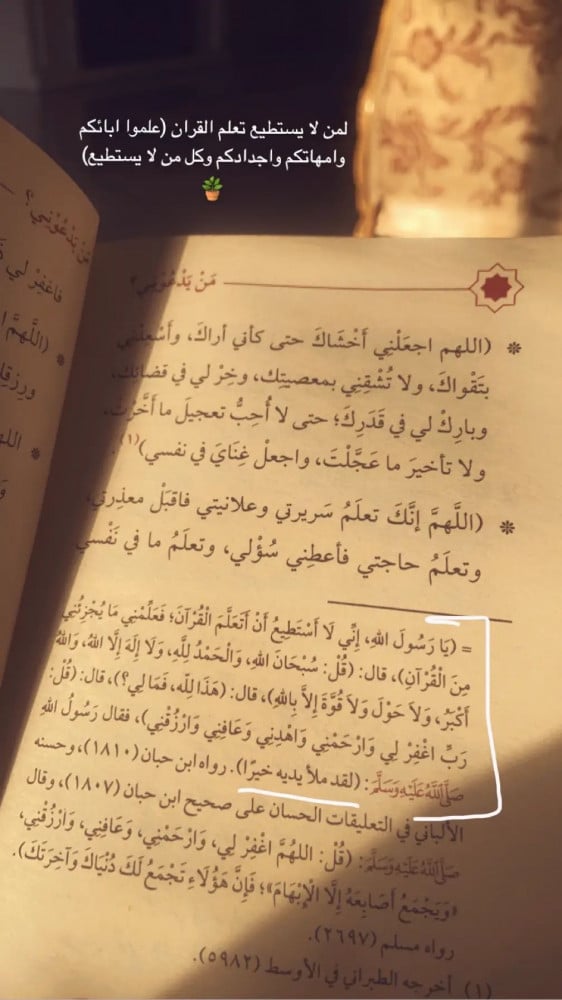 لمن لا يستطيع تعلم القران (علموا ابائكم
وامهاتكم واجدادكم وكل من لا يستطيع)
مَنْ يَدْعُوْنِي؟
فاغفِرْ لي
(اللَّهمَّ
ورِزقِ
الله
مَنْ يَدْعُوْنِي؟
* (اللهم اجعَلْنِي أَخْشَاكَ حتى كأني أراكَ، وَأَسْعِدْنِي
بتَقْواكَ، ولا تُشْقِنِي بمعصيتِك، وخِرْ لي في قضائكَ،
وباركْ لي في قَدَرِكَ؛ حتى لا أُحِبُّ تعجيلَ ما أَخَّرْتَ،
ولا تأخيرَ ما عَجَّلْتَ، واجعلْ غِنَايَ في نفسي)(١).
* (اللَّهمَّ إنَّكَ تعلَمُ سَريرتي وعلانيتي فاقبَلْ معذِرتي،
وتعلَمُ حاجتي فأعطِني سُؤْلي، وتعلَمُ ما في نَفْسي
= (يَا رَسُولَ اللهِ، إِنِّي لَا أَسْتَطِيعُ أَنْ أَتَعَلَّمَ الْقُرْآنَ؛ فَعَلِّمْنِي مَا يُجْزِئُنِي
مِنَ الْقُرْآنِ)، قال: (قُلْ: سُبْحَانَ اللهِ، وَالْحَمْدُ لِلَّهِ، وَلَا إِلَهَ إِلَّا اللهُ، وَاللهُ
أَكْبَرُ، وَلَا حَوْلَ وَلَا قُوَّةَ إِلَّا بِاللهِ)، قال: (هَذَا لِلَّه، فَمَا لي؟)، قال: (قُلْ:
رَبِّ اغْفِرْ لِي وَارْحَمْنِي وَاهْدِنِي وَعَافِنِي وَارْزُقْنِي)، فقال رَسُولُ اللهِ
صَلَّىٰ اللَّهُ عَلَيْهِ وَسَلَّمَ: (لقد ملأ يديه خيرًا). رواه ابن حبان (١٨١٠)، وحسنه
الألباني في التعليقات الحسان على صحيح ابن حبان (١٨٠٧)، وقال
صَلَّىٰ اللَّهُ عَلَيْهِ وَسَلَّمَ: (قُلْ: اللهُمَّ اغْفِرْ لِي، وَارْحَمْنِي، وَعَافِنِي، وَارْزُقْنِي،
«وَيَجْمَعُ أَصَابِعَهُ إِلَّا الْإِبْهَامَ»؛ فَإِنَّ هَؤُلَاءِ تَجْمَعُ لَكَ دُنْيَاكَ وَآخِرَتَكَ).
رواه مسلم (٢٦٩٧).
(١) أخرجه الطبراني في الأوسط (٥٩٨٢).